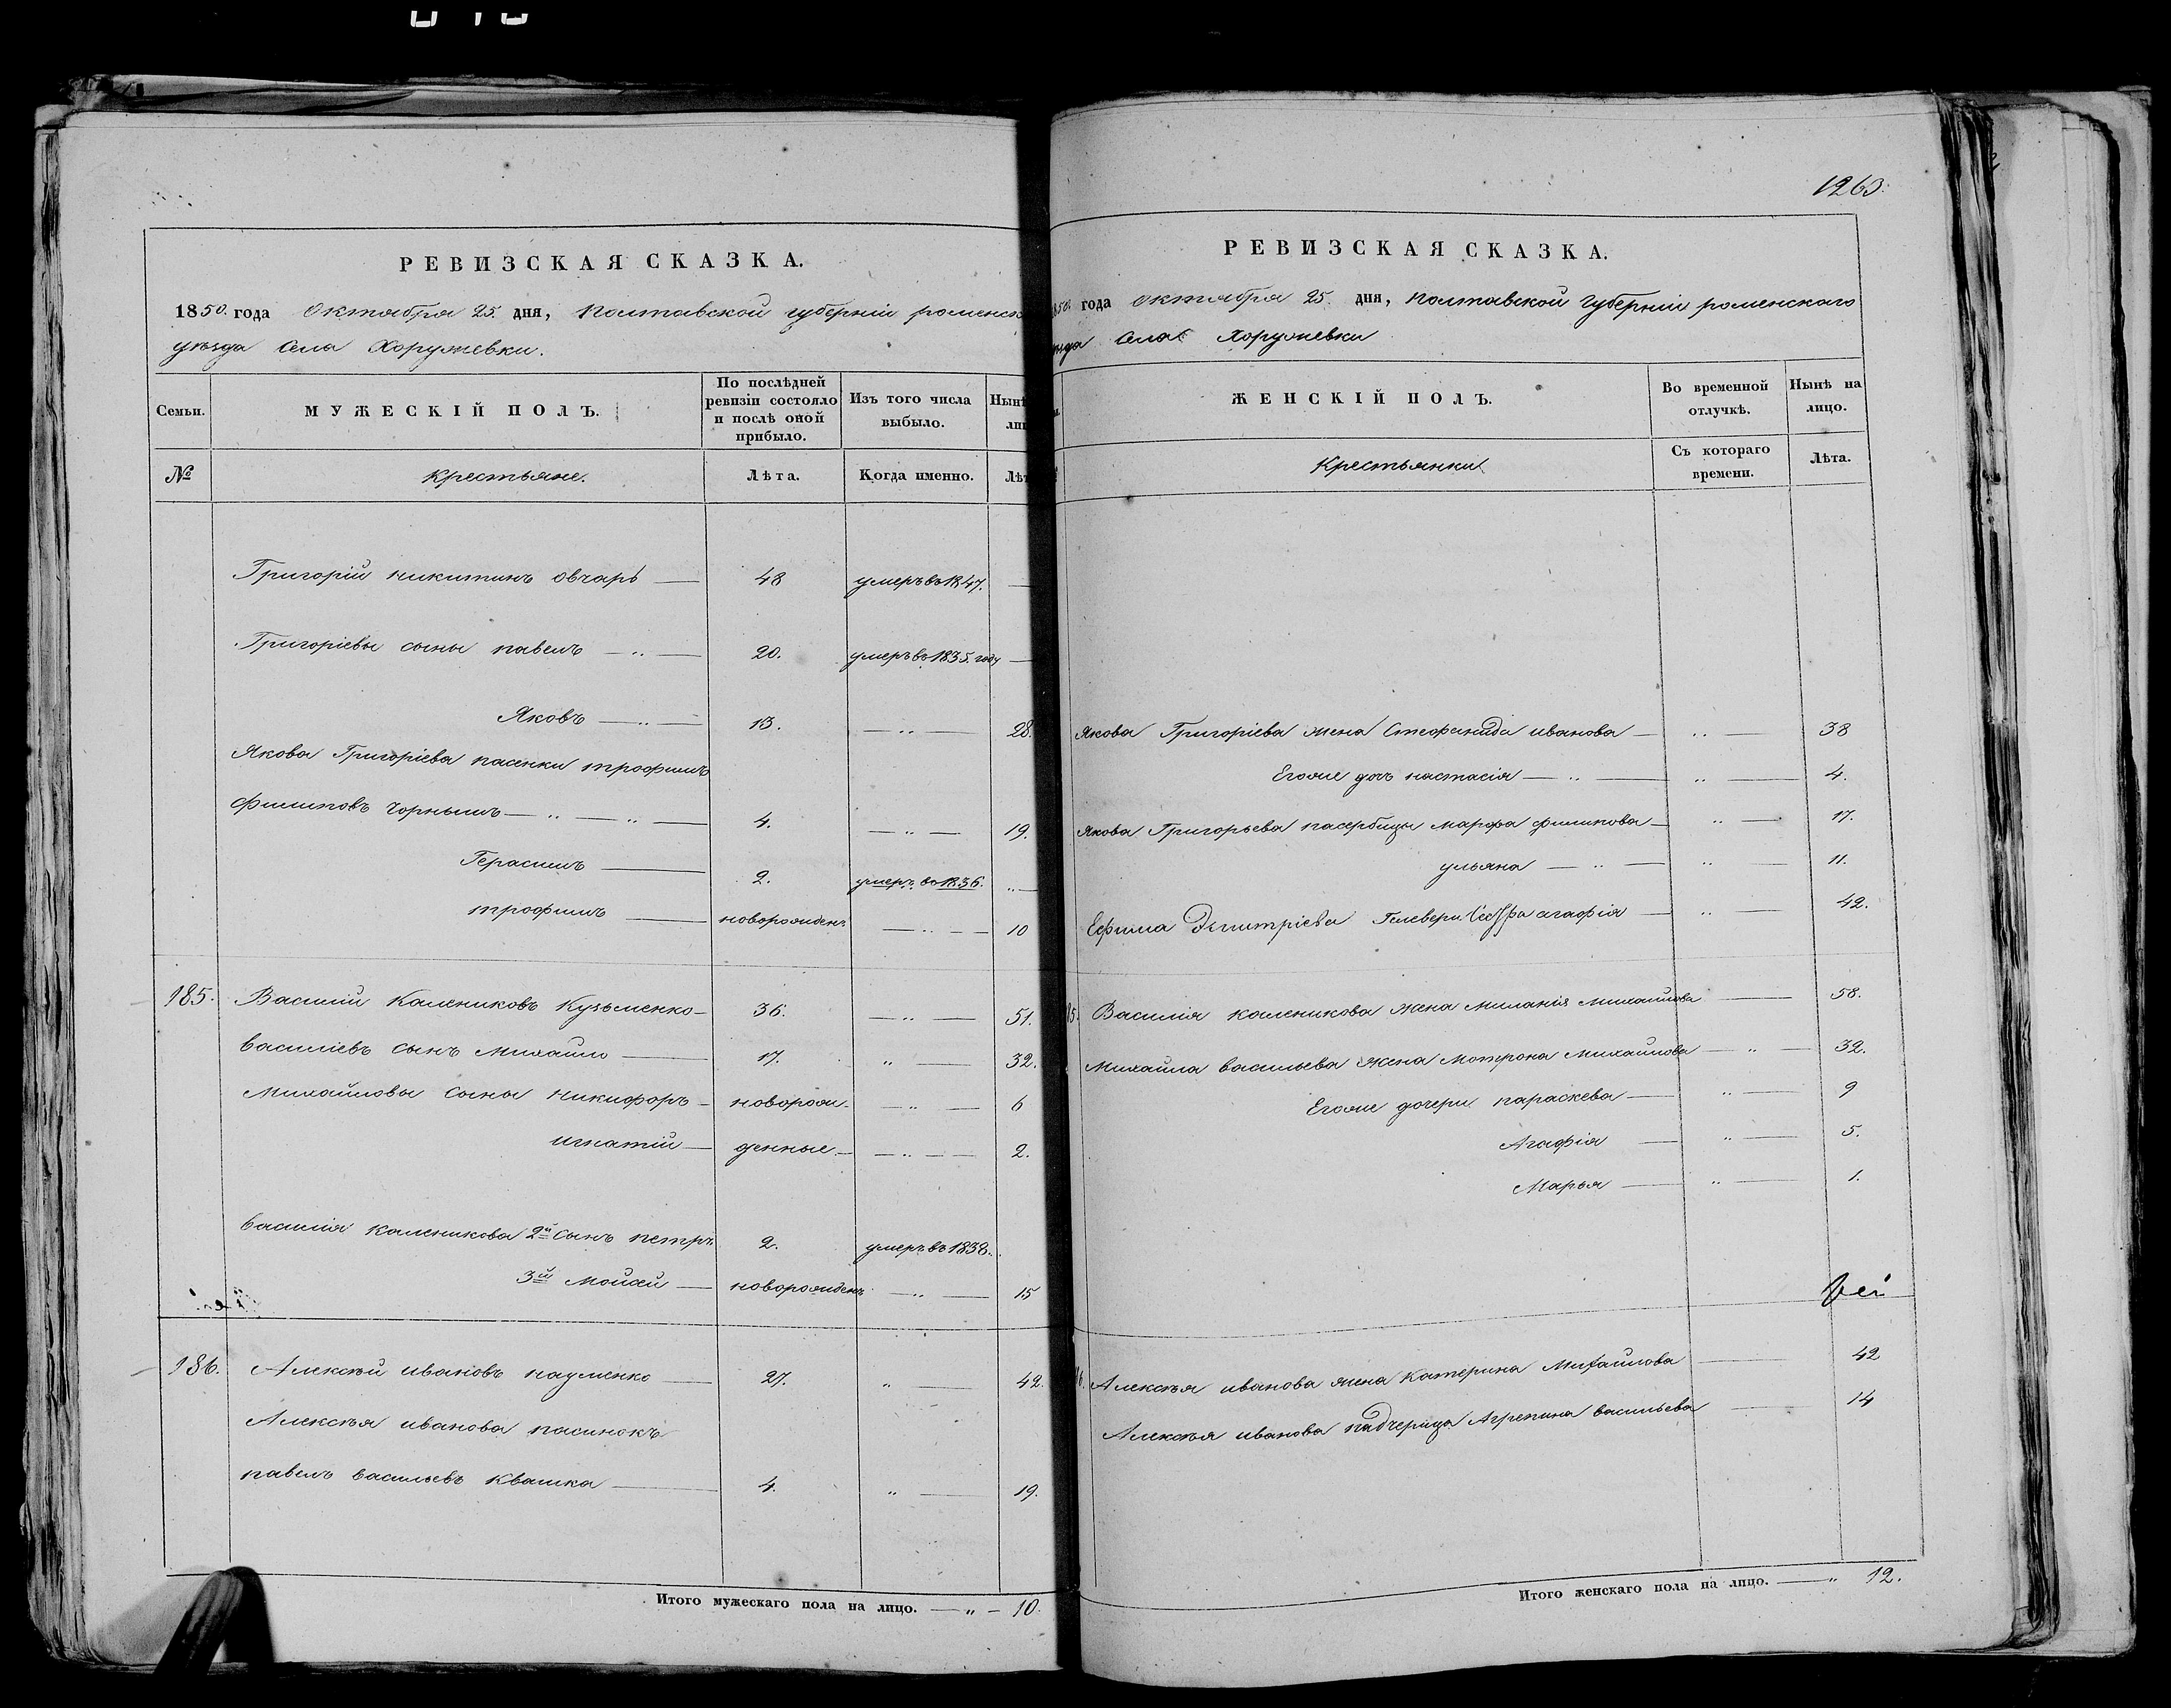 РЕВИЗСКАЯ СКАЗКА.
1850. года Октября 25. дня, Полтавской губерніи роменск
уѣзда Села Хоружевки.
Семьи.
МУЖЕСКІЙ ПОЛЪ.
По послѣдней ревизіи состояло и послѣ оной прибыло.
Изъ того числа выбыло.
Нынѣ
ли
№
Крестьяне.
Лѣта.
Когда именно.
Лѣт
Григорій никитинъ овчарь — 48 умеръ въ 1847. —
Григоріевы сыны павелъ — „ — 20. умеръ въ 1835. году —
Яковъ — „ — 13. — „ — 28.
Якова Григоріева пасенки трофимъ
Филиповъ Чорнышъ — „ — „ — 4. — „ — 19.
Герасимъ — 2. умеръ въ 1836. „ —
трофимъ — новорожден. — „ — 10
185. Василій Калениковъ Кузьменко — 36. — „ — 51.
Василіевъ сынъ Михайло — 17. „ — 32.
Михайловы сыны никифоръ — новорож- — „ — 6
игнатій — денные — — „ — 2.
Василія Каленикова 2й сынъ петръ 2. умеръ въ 1838.
3й Мойсей — новорожденъ — „ — 15
186. Алексѣй ивановъ науменко — 27. „ — 42.
Алексѣя иванова пасинокъ
павелъ васильевъ Квашка — 4. „ — 19.
Итого мужескаго пола на лицо. — „ — 10.
1263.
РЕВИЗСКАЯ СКАЗКА.
1850. года октября 25. дня, полтавской губерніи роменскаго
уѣзда Села Хоружевки
ЖЕНСКІЙ ПОЛЪ.
Во временной отлучкѣ.
Нынѣ на лицо.
Крестьянки
Съ котораго времени.
Лѣта.
Якова Григоріева жена Стефанида иванова — „ — 38
Егоже дочь настасія — „ — „ — 4.
Якова Григорьева пасербицы марфа филипова — „ — 17.
ульяна — „ — „ — 11.
Ефима Дмитріева сестра агафія — „ — 42.
Василія каленикова жена Миланія Михайлова — 58.
Михайла васильева жена Мотрона Михайлова — „ — 32.
Егоже дочери параскева — „ — 9
Агафія — „ — 5.
Марья — „ — 1.
Алексѣя иванова жена Катерина Михайлова — 42
Алексѣя иванова падчерица Агрепина васильева — 14
Итого женскаго пола на лицо. — „ 12.